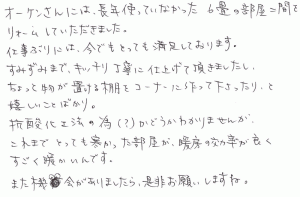 オーケンさんには、長年使っていなかった 6畳の部屋二間を
リォームしていただきました。
仕事ぶりには、今でもとっても満足しております。
すみずみまで、キッチリ丁寧に仕上げて頂きましたし、
ちょっと物が置ける棚をコーナーに作って下さったり、と
嬉しいことばかり。
抗酸化工法の為(?)かどうかわかりませんが、
これまで とっても寒かった部屋が、暖房の効率が良く
すごく暖かいんです。
また機会がありましたら、是非お願いしますね。